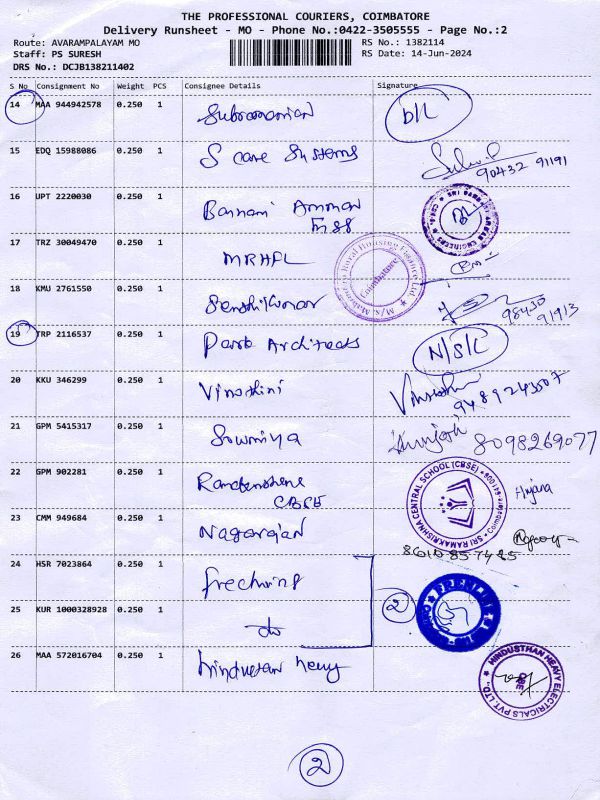 THE PROFESSIONAL COURIERS, COIMBATORE
Delivery Runsheet - MO - Phone No.:0422-3505555 - Page No.:2
Route: AVARAMPALAYAM MO
RS No.: 1382114
Staff: PS SURESH
RS Date: 14-Jun-2024
DRS No.: DCJB138211402
S No Consignment No Weight PCS Consignee Details Signature
14 MAA 944942578 0.250 1 Subramanian D/L
15 EDQ 15988086 0.250 1 S care Systems
90432 91191
16 UPT 2220030 0.250 1 Bannari Amman
17 TRZ 30049470 0.250 1 MRHFL
Rural Housing Finance Ltd.
Coimbatore
18 KMU 2761550 0.250 1 Senthilkumar
98430
91913
19 TRP 2116537 0.250 1 Architects N/S/L
20 KKU 346299 0.250 1 Vinothini
21 GPM 5415317 0.250 1 Sowmiya 8098269077
22 GPM 902281 0.250 1 CBSE
SRI RAMAKRISHNA CENTRAL SCHOOL (CBSE)
Coimbatore
23 CMM 949684 0.250 1 Nagarajan
8610857485
24 HSR 7023864 0.250 1
2
25 KUR 1000328928 0.250 1 do
26 MAA 572016704 0.250 1 hindustan heavy
HINDUSTHAN HEAVY ELECTRICALS PVT. LTD.
CBE
2